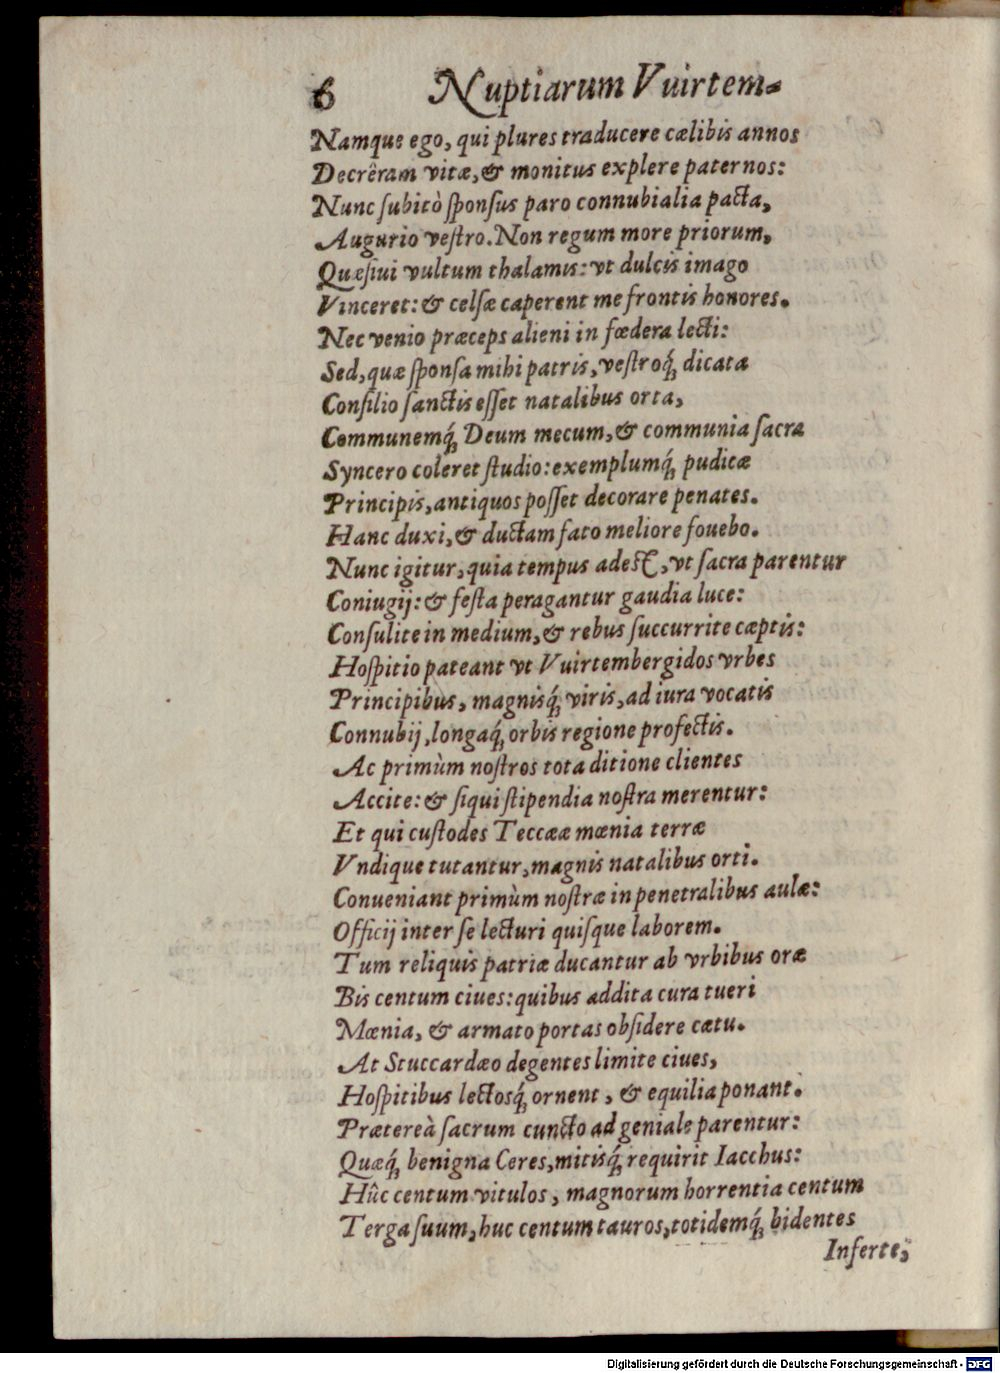 6 Nuptiarum Vuirtem-
Namque ego, qui plures traducere cælibis annos
Decrêram vitæ, & monitus explere paternos:
Nunc ſubitò ſponſus paro connubialia pacta,
Augurio veſtro. Non regum more priorum,
Quæſiui vultum thalamis: vt dulcis imago
Vinceret: & celſæ caperent me frontis honores.
Nec venio præceps alieni in fœdera lecti:
Sed, quæ ſponſa mihi patris, veſtroq́; dicata
Conſilio ſanctis eſſet natalibus orta,
Communemq́; Deum mecum, & communia ſacra
Syncero coleret ſtudio: exemplumq́; pudicæ
Principis, antiquos poſſet decorare penates.
Hanc duxi, & ductam fato meliore fouebo.
Nunc igitur, quia tempus adeſt, vt ſacra parentur
Coniugij: & feſta peragantur gaudia luce:
Conſulite in medium, & rebus ſuccurrite cæptis:
Hoſpitio pateant vt Vuirtembergidos vrbes
Principibus, magnisq́; viris, ad iura vocatis
Connubij, longaq́; orbis regione profectis.
Ac primùm noſtros tota ditione clientes
Accite: & ſiqui ſtipendia noſtra merentur:
Et qui cuſtodes Teccææ mœnia terræ
Vndique tutantur, magnis natalibus orti.
Conueniant primùm noſtræ in penetralibus aulæ:
Officij inter ſe lecturi quiſque laborem.
Tum reliquis patriæ ducantur ab vrbibus oræ
Bis centum ciues: quibus addita cura tueri
Mœnia, & armato portas obſidere cætu.
At Stuccardæo degentes limite ciues,
Hoſpitibus lectosq́; ornent, & equilia ponant.
Prætereà ſacrum cuncto ad geniale parentur:
Quæq́; benigna Ceres, mitisq́; requirit Iacchus:
Hûc centum vitulos, magnorum horrentia centum
Terga ſuum, huc centum tauros, totidemq́; bidentes
Inferte,
Digitalisierung gefördert durch die Deutsche Forschungsgemeinschaft - DFG